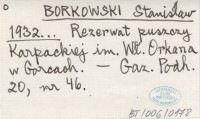 BORKOWSKI Stanisław
1932... Rezerwat puszczy
Karpackiej im. Wł. Orkana
w Gorcach. — Gaz. Podh.
20, nr 46.
BT/006/0448